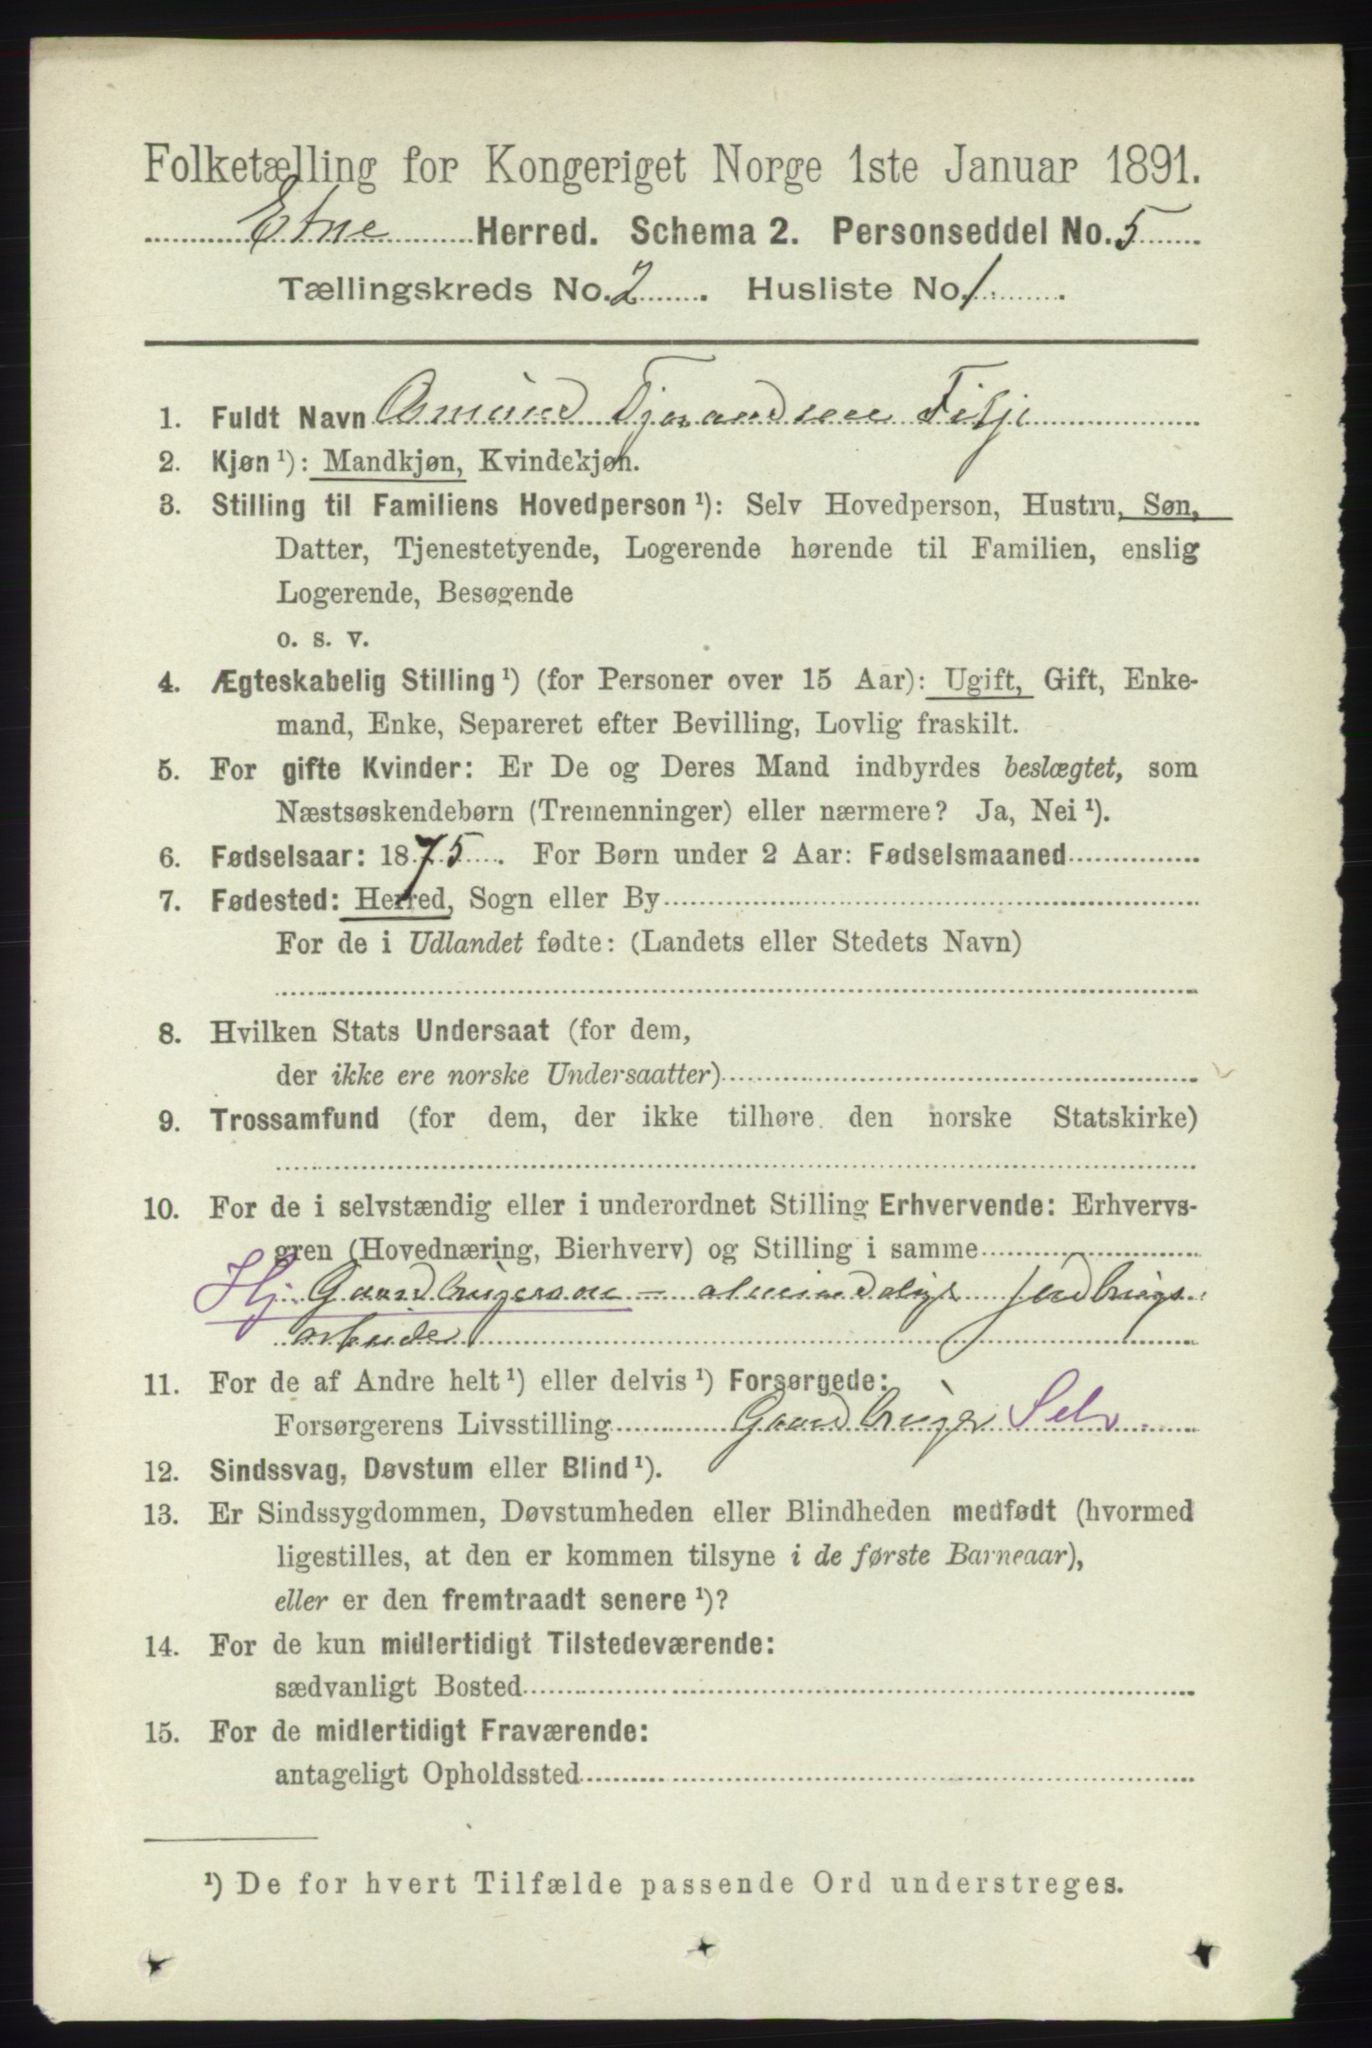 Folketælling for Kongeriget Norge 1ste Januar 1891.
Etne Herred. Schema 2. Personseddel No. 5
Tællingskreds No. 2. Husliste No. 1.
1. Fuldt Navn Osmund Tjerandsen Fitje
2. Kjøn ¹): Mandkjøn, Kvindekjøn.
3. Stilling til Familiens Hovedperson ¹): Selv Hovedperson, Hustru, Søn,
Datter, Tjenestetyende, Logerende hørende til Familien, enslig
Logerende, Besøgende
o. s. v.
4. Ægteskabelig Stilling ¹) (for Personer over 15 Aar): Ugift, Gift, Enke-
mand, Enke, Separeret efter Bevilling, Lovlig fraskilt.
5. For gifte Kvinder: Er De og Deres Mand indbyrdes beslægtet, som
Næstsøskendebørn (Tremenninger) eller nærmere? Ja, Nei ¹).
6. Fødselsaar: 1875. For Børn under 2 Aar: Fødselsmaaned
7. Fødested: Herred, Sogn eller By
For de i Udlandet fødte: (Landets eller Stedets Navn)
8. Hvilken Stats Undersaat (for dem,
der ikke ere norske Undersaatter)
9. Trossamfund (for dem, der ikke tilhøre den norske Statskirke)
10. For de i selvstændig eller i underordnet Stilling Erhvervende: Erhvervs-
gren (Hovednæring, Bierhverv) og Stilling i samme
Hj. Gaardbrugersøn – almindelige Jordbrugs
arbeide
11. For de af Andre helt ¹) eller delvis ¹) Forsørgede:
Forsørgerens Livsstilling Gaardbruger Selv
12. Sindssvag, Døvstum eller Blind ¹).
13. Er Sindssygdommen, Døvstumheden eller Blindheden medfødt (hvormed
ligestilles, at den er kommen tilsyne i de første Barneaar),
eller er den fremtraadt senere ¹)?
14. For de kun midlertidigt Tilstedeværende:
sædvanligt Bosted
15. For de midlertidigt Fraværende:
antageligt Opholdssted
¹) De for hvert Tilfælde passende Ord understreges.